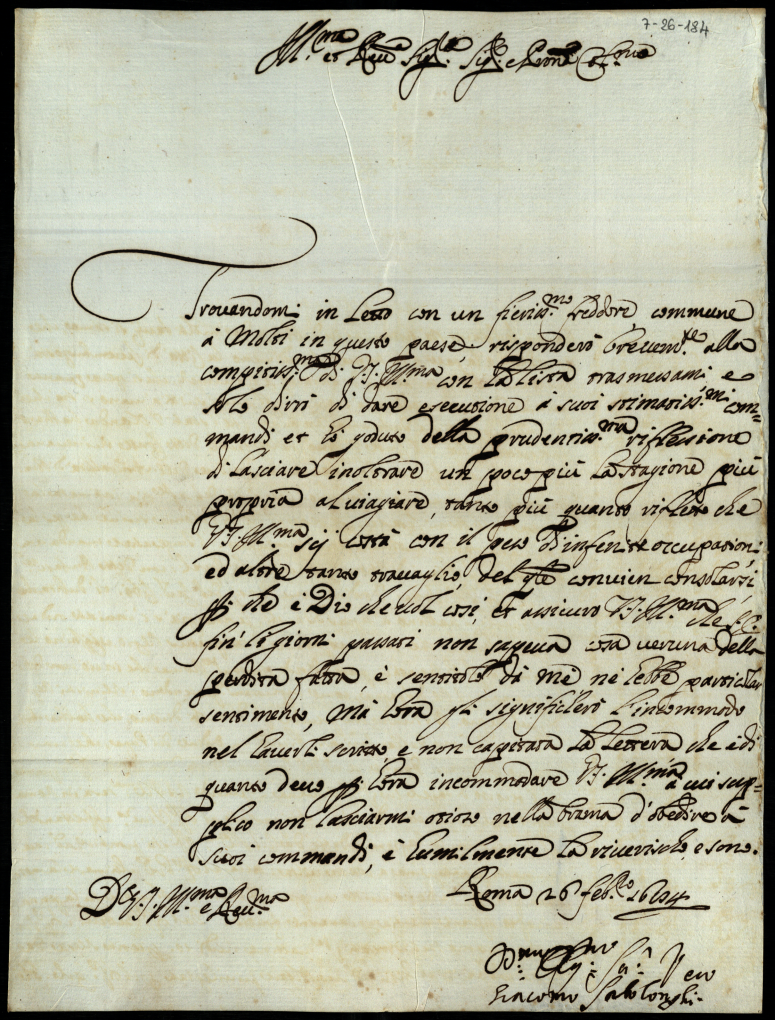 7-26-184
Ill.ma et Reu.ma Sig.r Sig.r e Pron Col.mo
Trouandomi in Letto con un fieriss.mo freddore commune
à Molti in questo paese risponderò breuem.te alla
compitiss.ma di V.S. Ill.ma con la lista trasmessami e
solo dirò di dare esecutione à suoi stimatiss.mi com=
mandi et hò goduto della prudentiss.ma riflessione
di lasciare inoltrare un poco più la stagione più
propria al uiagiare, tanto più quanto rifletto che
V.S. Ill.ma sij costà con il peso d'infinite occupationi
ed altre tanto trauaglio, del q.le conuien consolarsi
p che è Dio che uol cosi, et assicuro V.S. Ill.ma che
fin' li giorni passati non sapeua cosa ueruna della
perdita fatta, e sentitola da me ne hebbi particolar
sentimento, Mà hora gli significherò l'incommodo
nel hauerli scritto e non capitata la lettera che è di
quanto deuo p hora incommodare V.S. Ill.ma à cui sup=
plico non lasciarmi otioso nella brama d'obedire à
suoi commandi, e humilmente la riuerisco, e sono.
Di V.S. Ill.ma e Reu.ma
Roma 26 feb.ro 1684
Giacomo